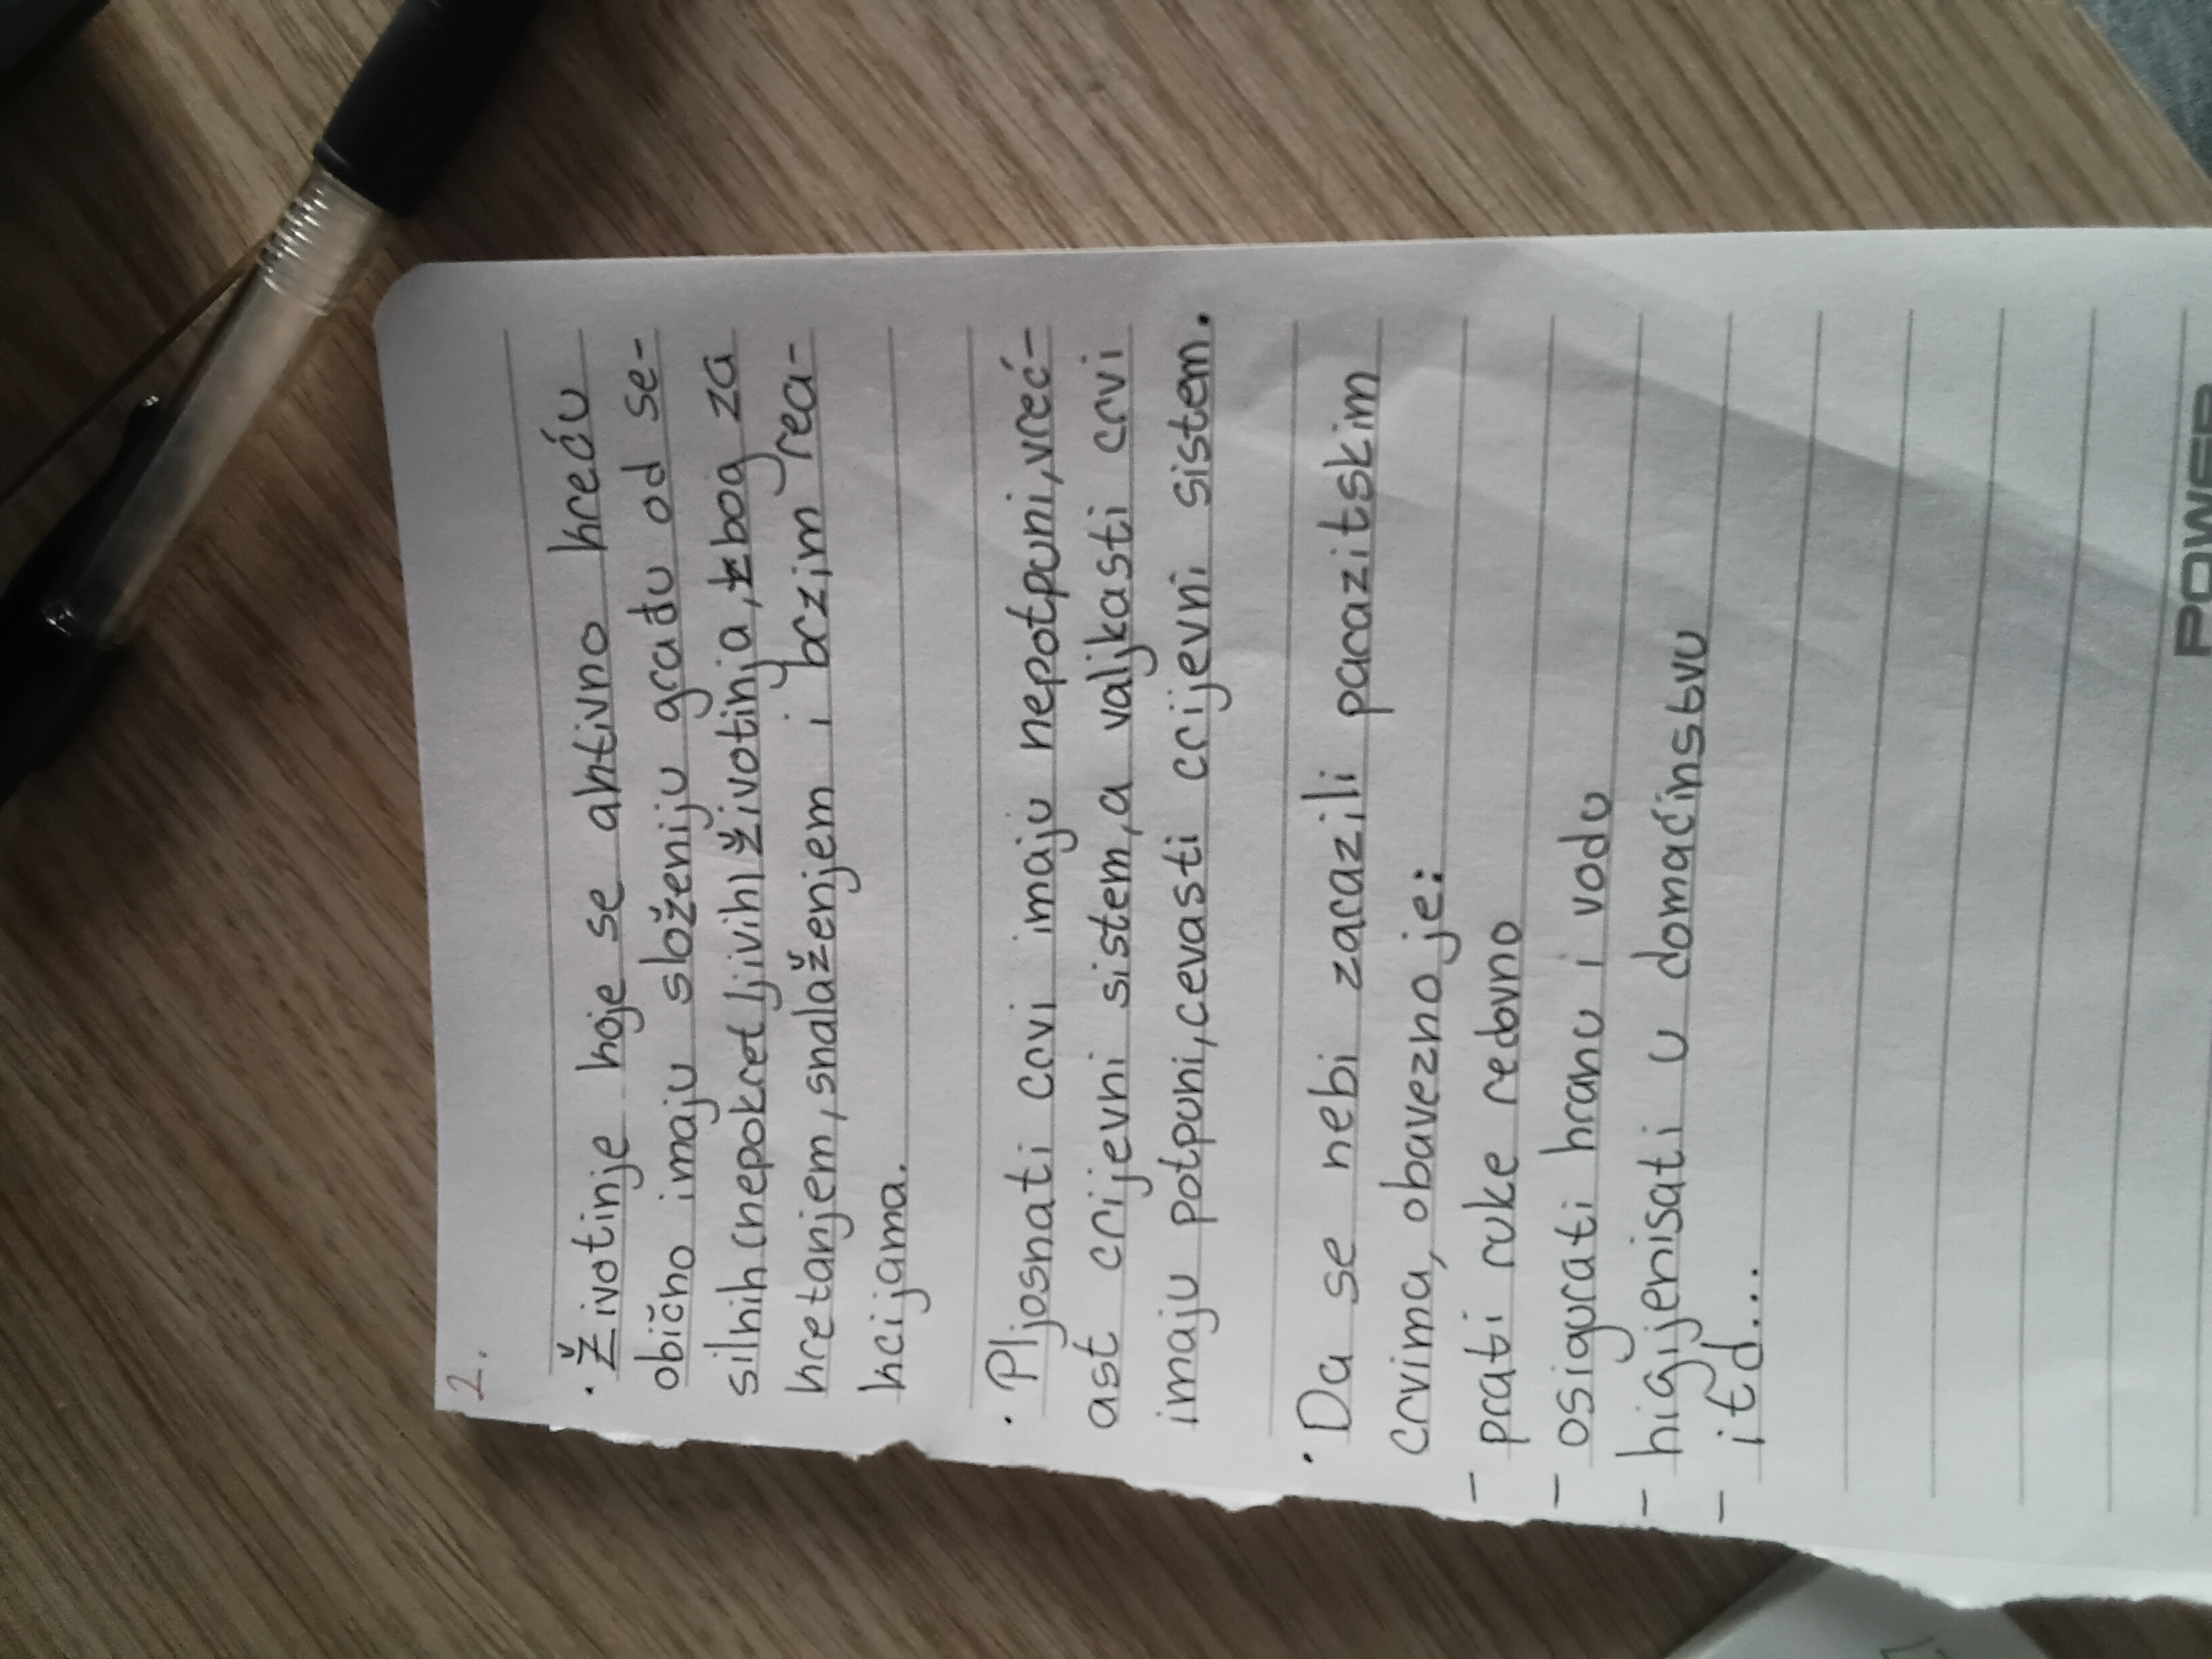 2.
· Životinje koje se aktivno kreću
obično imaju složeniju građu od se-
silnih (nepokretljivih) životinja, zbog za
kretanjem, snalaženjem i brzim rea-
kcijama.
· Pljosnati crvi imaju nepotpuni, vreć-
ast crijevni sistem, a valjkasti crvi
imaju potpuni, cevasti crijevni sistem.
· Da se nebi zarazili parazitskim
crvima, obavezno je:
- prati ruke redovno
- osigurati hranu i vodu
- higijenisati u domaćinstvu
- itd...
POWER